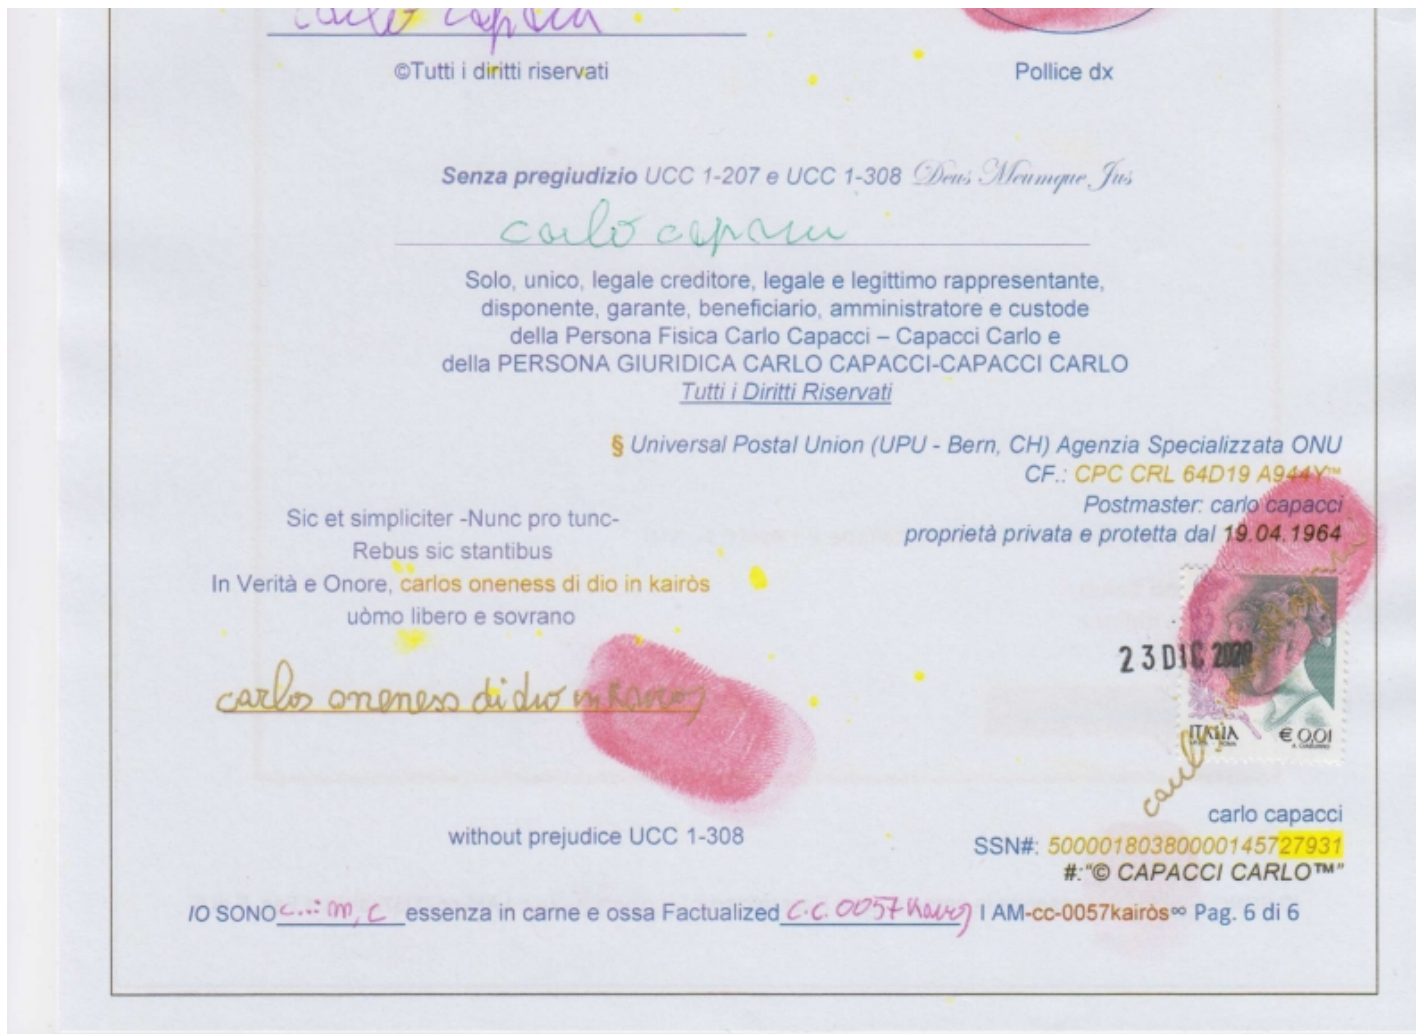 carlo capacci
©Tutti i diritti riservati
Pollice dx
Senza pregiudizio UCC 1-207 e UCC 1-308 Deus Meumque Jus
carlo capacci
Solo, unico, legale creditore, legale e legittimo rappresentante,
disponente, garante, beneficiario, amministratore e custode
della Persona Fisica Carlo Capacci – Capacci Carlo e
della PERSONA GIURIDICA CARLO CAPACCI-CAPACCI CARLO
Tutti i Diritti Riservati
§ Universal Postal Union (UPU - Bern, CH) Agenzia Specializzata ONU
CF.: CPC CRL 64D19 A944Y™
Postmaster: carlo capacci
proprietà privata e protetta dal 19.04.1964
Sic et simpliciter -Nunc pro tunc-
Rebus sic stantibus
In Verità e Onore, carlos oneness di dio in kairòs
uòmo libero e sovrano
23 DIC 2020
carlos oneness di dio in kairos
ITALIA
€ 0,01
carlo
carlo capacci
without prejudice UCC 1-308
SSN#: 50000180380000145727931
#:"© CAPACCI CARLO™"
IO SONO c...: m, c essenza in carne e ossa Factualized c.c. 0057 Kairos I AM-cc-0057kairòs∞ Pag. 6 di 6